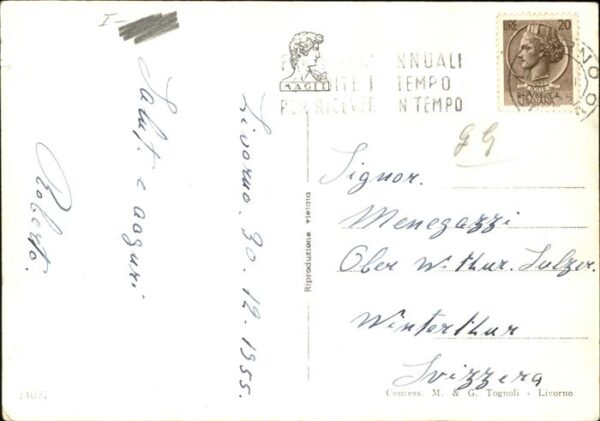 I-
Saluti e auguri
Roberto.
Livorno. 30. 12. 1955.
NNUALI
TEMPO
PER RICEVER IN TEMPO
MAGLI
LIRE 20
REPUBBLICA
ITALIANA
GG
Signor.
Menegazzi
Ober Winthur. Sulzer.
Winterthur
Svizzera
Riproduzione vietata
Concess. M. & G. Tognoli - Livorno